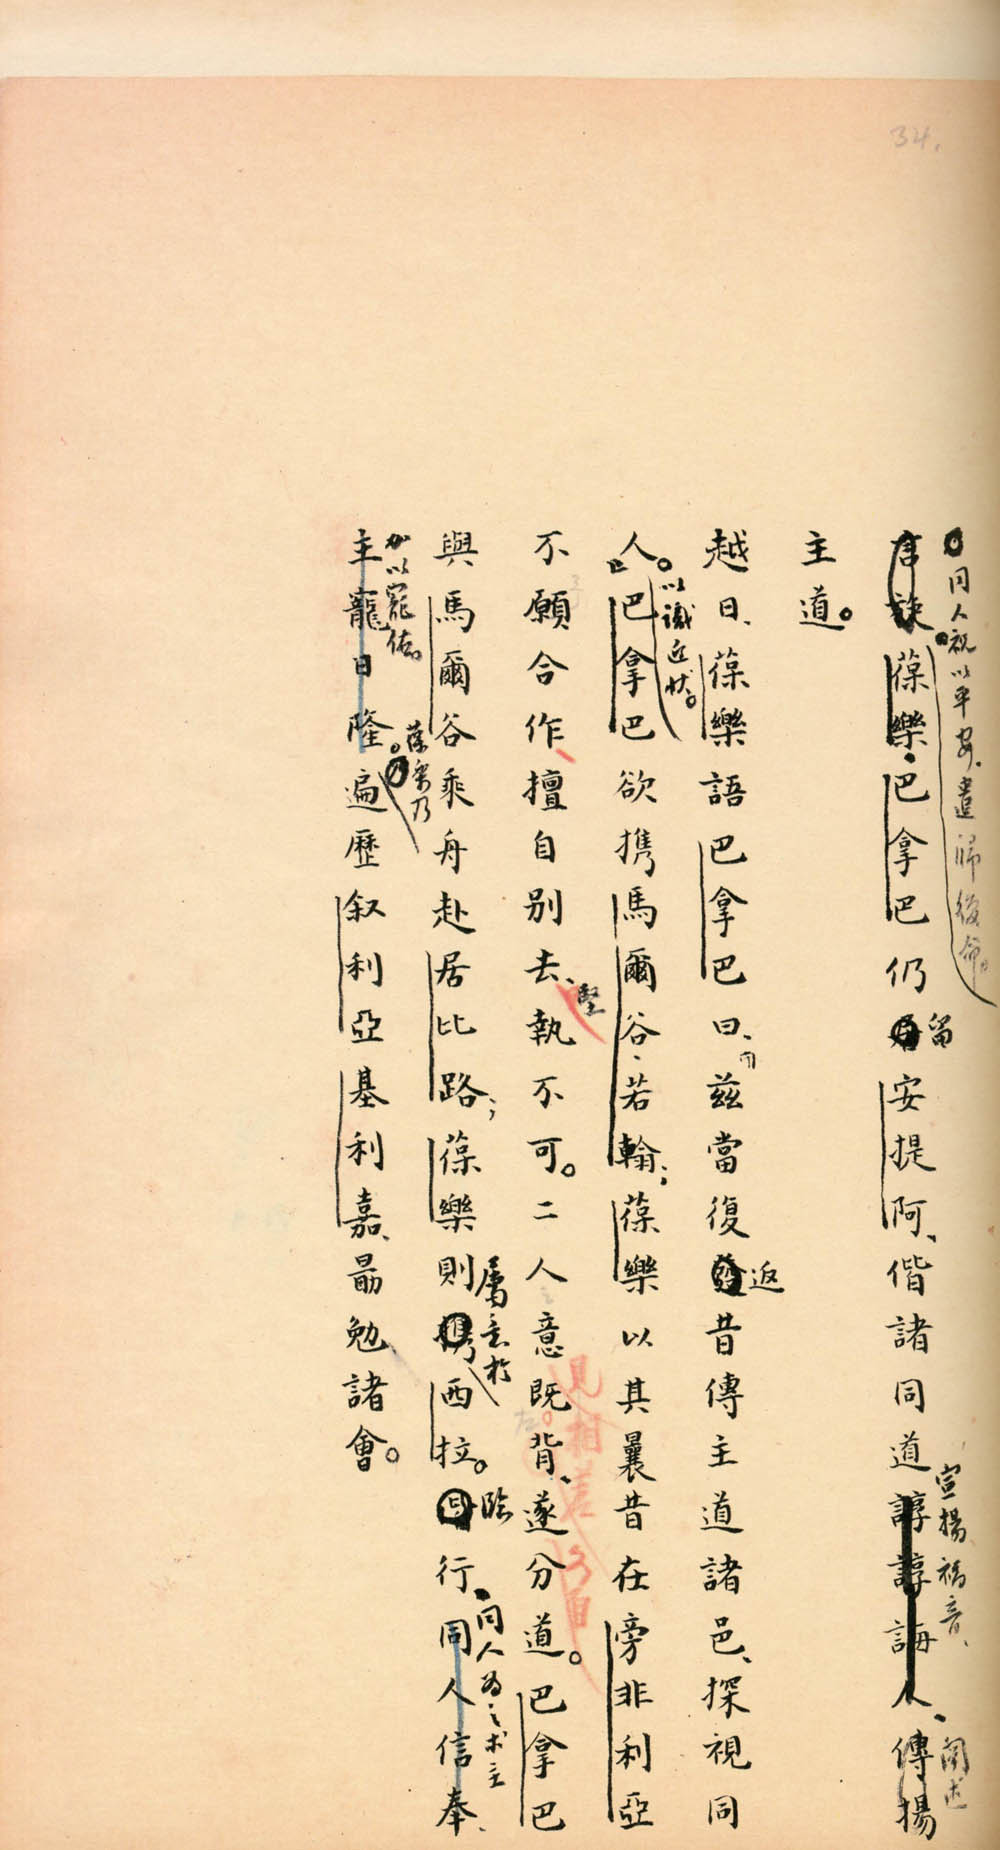 34.
同人祝以平安遣歸復命。
言訣葆樂、巴拿巴仍留安提阿、偕諸同道諄諄誨人、傳揚
宣揚福音、闡述
主道。
越日、葆樂語巴拿巴曰、茲當復返昔傳主道諸邑、探視同
以識近狀。
人。巴拿巴欲携馬爾谷、若翰；葆樂以其曩昔在旁非利亞
不願合作、擅自別去、堅執不可。二人意既背、遂分道。巴拿巴
見相差各自
與馬爾谷乘舟赴居比路；葆樂則携西拉。臨行、同人信奉、
屬意於
同人為之求主
加以寵佑。
葆樂乃
主寵日隆。遍歷叙利亞基利嘉、勗勉諸會。